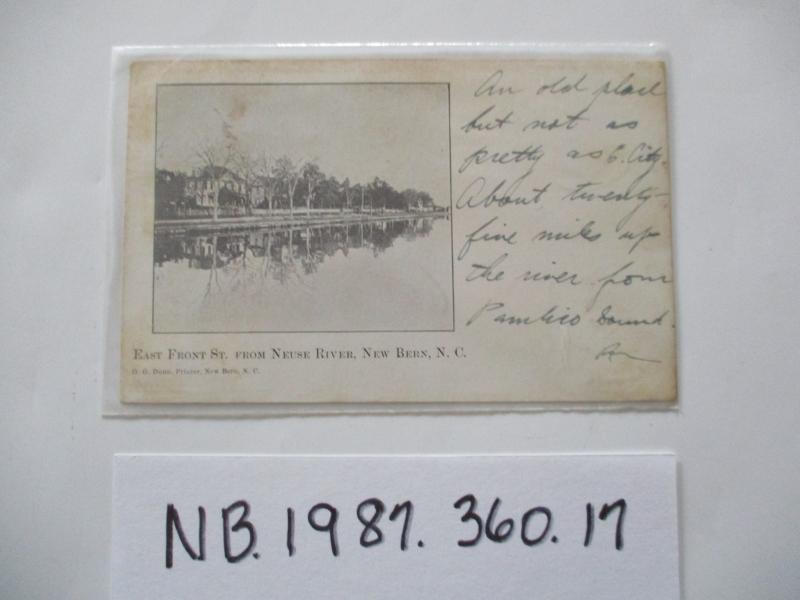 An old place
but not as
pretty as E. City.
About twenty-
five miles up
the river from
Pamlico Sound.
EAST FRONT ST. FROM NEUSE RIVER, NEW BERN, N. C.
O. G. Dunn, Printer, New Bern, N. C.
NB. 1987. 360. 17